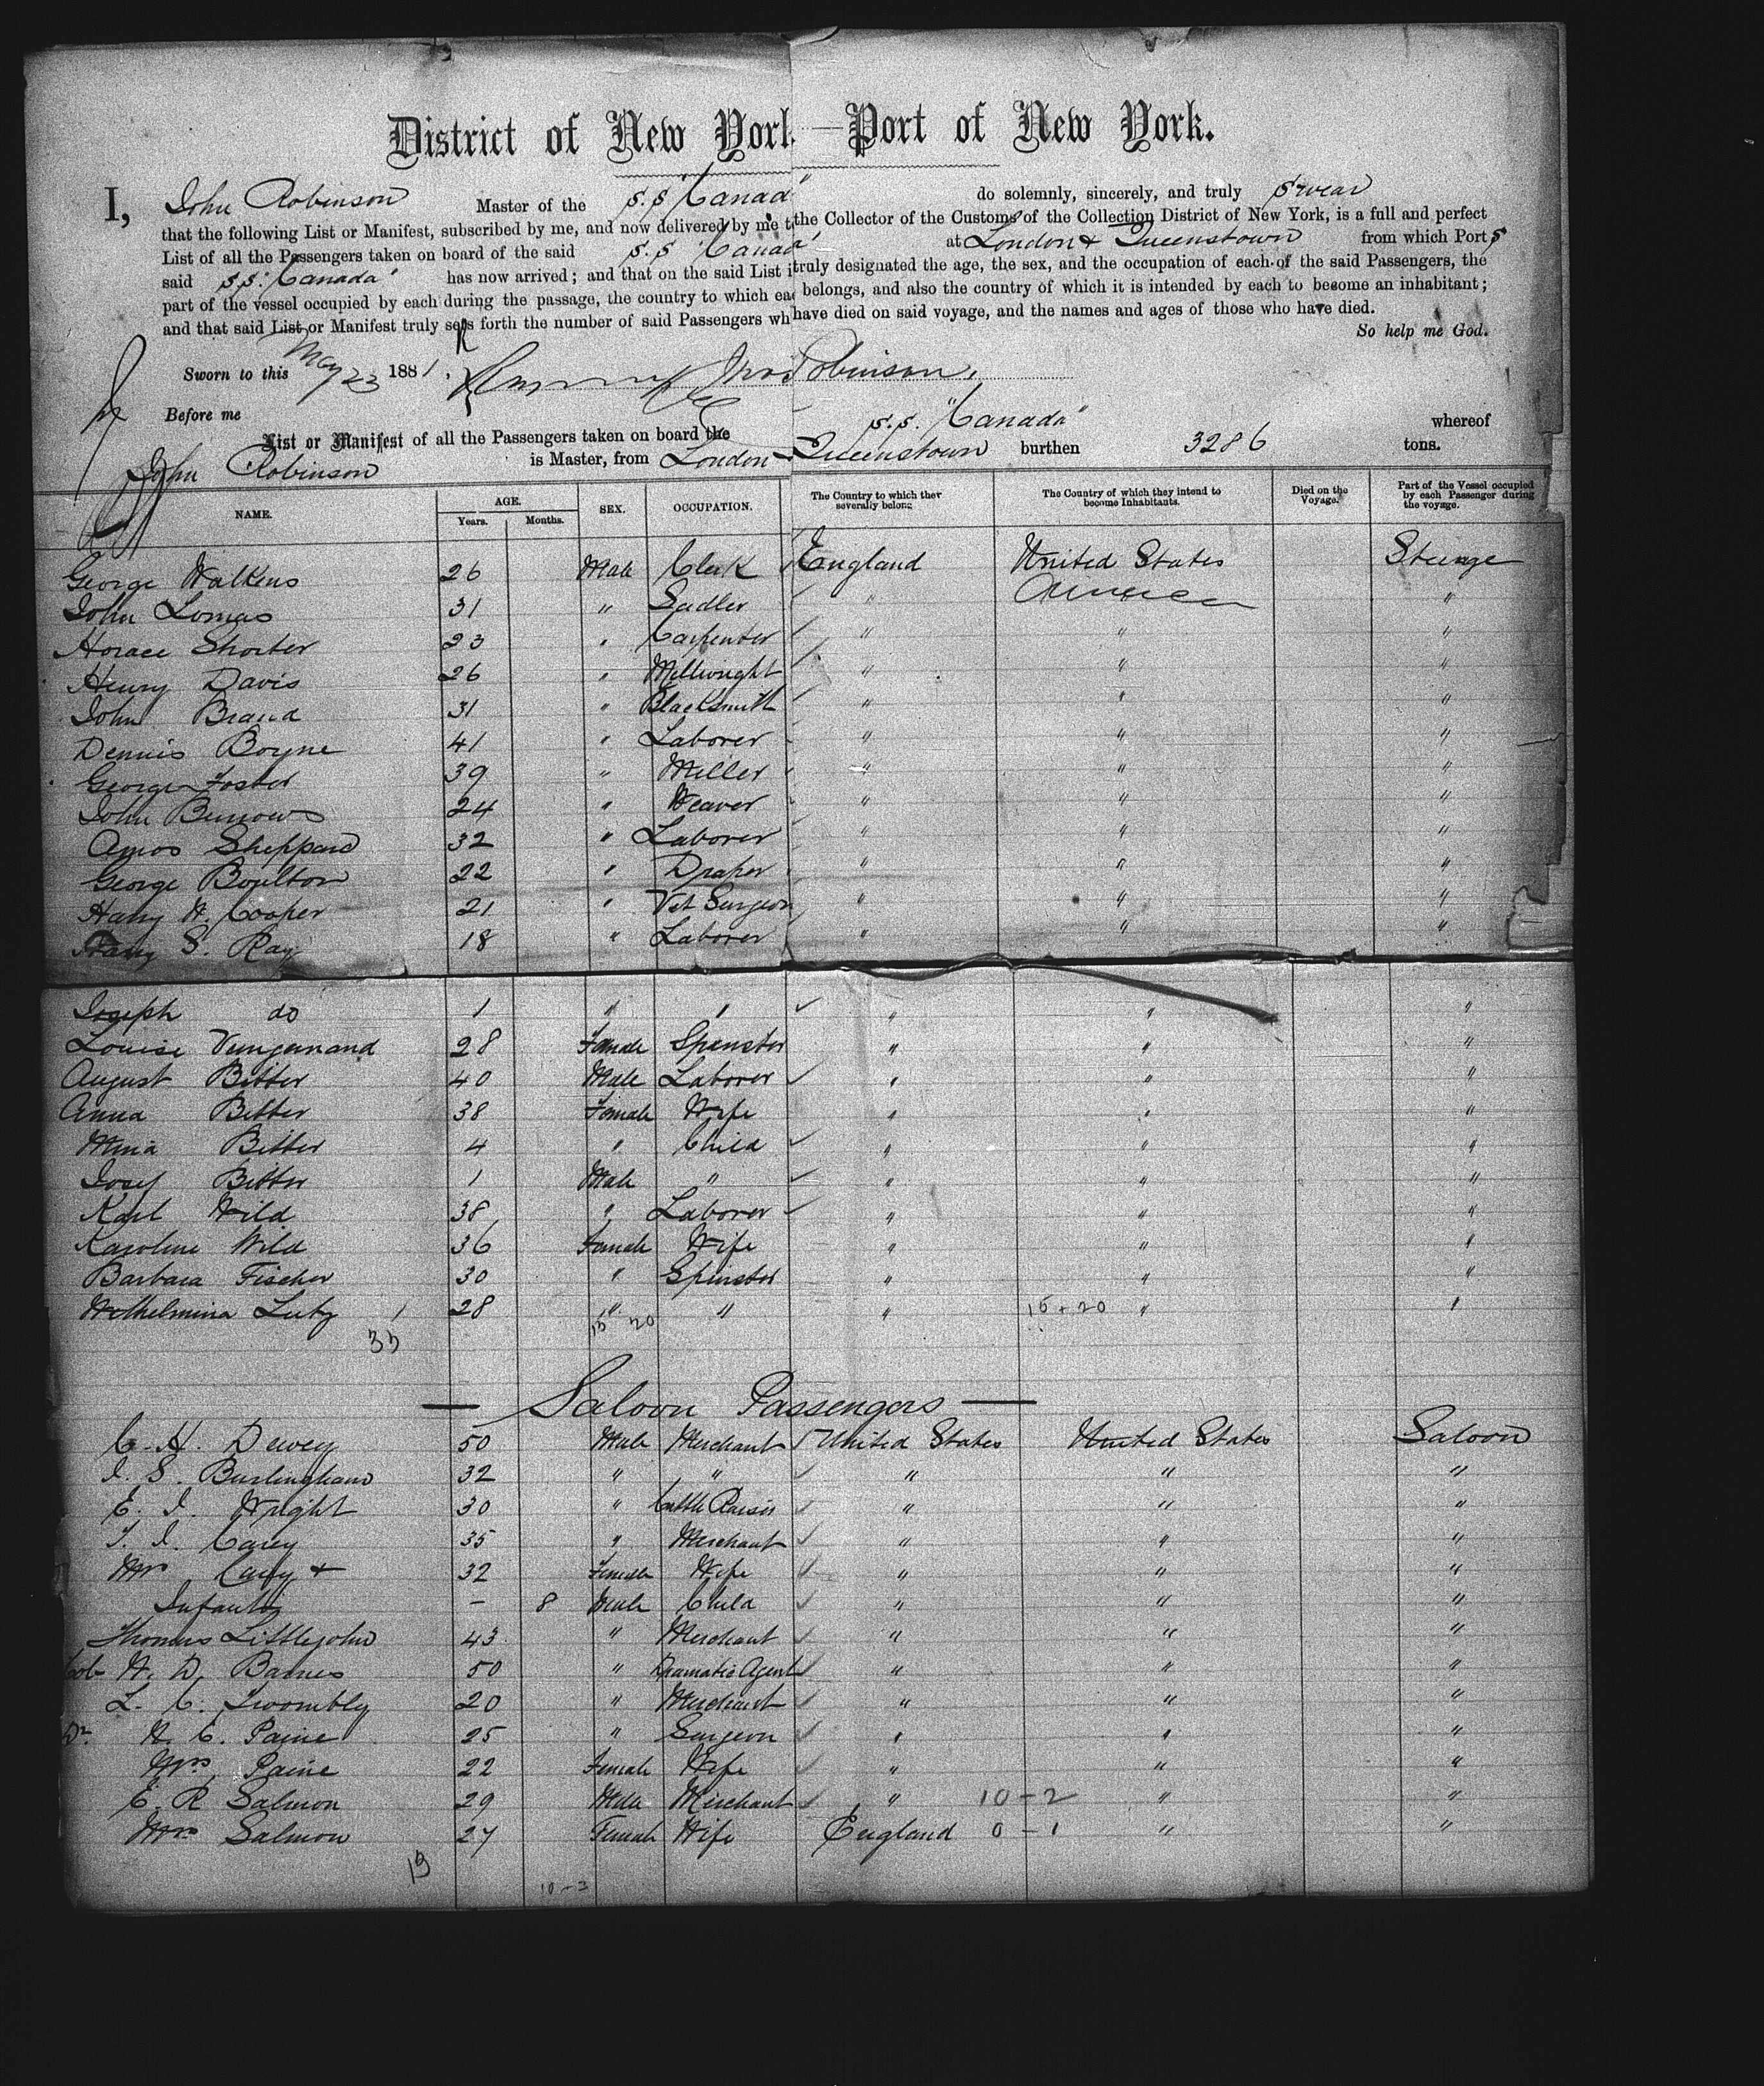 District of New York — Port of New York.
I, John Robinson Master of the S.S. "Canada" do solemnly, sincerely, and truly swear
that the following List or Manifest, subscribed by me, and now delivered by me to the Collector of the Customs of the Collection District of New York, is a full and perfect
List of all the Passengers taken on board of the said S.S. "Canada" at London & Queenstown from which Ports
said S.S. "Canada" has now arrived; and that on the said List is truly designated the age, the sex, and the occupation of each of the said Passengers, the
part of the vessel occupied by each during the passage, the country to which each belongs, and also the country of which it is intended by each to become an inhabitant;
and that said List or Manifest truly sets forth the number of said Passengers who have died on said voyage, and the names and ages of those who have died.
So help me God.
Sworn to this May 23 1881, Jno Robinson.
Before me
List or Manifest of all the Passengers taken on board the S.S. "Canada" whereof
John Robinson is Master, from London Queenstown burthen 3286 tons.
NAME. AGE. Years. Months. SEX. OCCUPATION. The Country to which they severally belong The Country of which they intend to become Inhabitants. Died on the Voyage. Part of the Vessel occupied by each Passenger during the voyage.
George Walkens 26 Male Clerk England United States Steerage
John Lomas 31 " Sadler " America "
Horace Shorter 23 " Carpenter " " "
Henry Davis 26 " Millwright " " "
John Brand 31 " Blacksmith " " "
Dennis Boyne 41 " Laborer " " "
George Foster 39 " Miller " " "
John Burrows 24 " Weaver " " "
Amos Sheppard 32 " Laborer " " "
George Boulton 22 " Draper " " "
Harry H. Cooper 21 " Vet Surgeon " " "
Harry S. Ray 18 " Laborer " " "
Joseph do 1 " " " " "
Louise 28 Female Spinster " " "
August Bitter 40 Male Laborer " " "
Anna Bitter 38 Female Wife " " "
Mina Bitter 4 " Child " " "
Josef Bitter 1 Male " " " "
Karl Wild 38 " Laborer " " "
Karoline Wild 36 Female Wife " " "
Barbara Fischer 30 " Spinster " " "
Wilhelmina Lutz 1 28 " " " 15 + 20 " "
33 15 20
— Saloon Passengers —
C. H. Dewey 50 Male Merchant United States United States Saloon
I. S. Burlingham 32 " " " " "
E. I. Wright 30 " Cattle Raiser " " "
T. I. Carey 35 " Merchant " " "
Mrs Carey + 32 Female Wife " " "
Infant - 8 Male Child " " "
Thomas Littlejohn 43 " Merchant " " "
Col. W. D. Barnes 50 " Dramatic Agent " " "
L. C. Twombly 20 " Merchant " " "
Dr. H. E. Paine 25 " Surgeon " " "
Mrs. Paine 22 Female Wife " " "
E. R Salmon 29 Male Merchant " 10 - 2 " "
Mrs Salmon 27 Female Wife England 0 - 1 " "
13
10 - 3